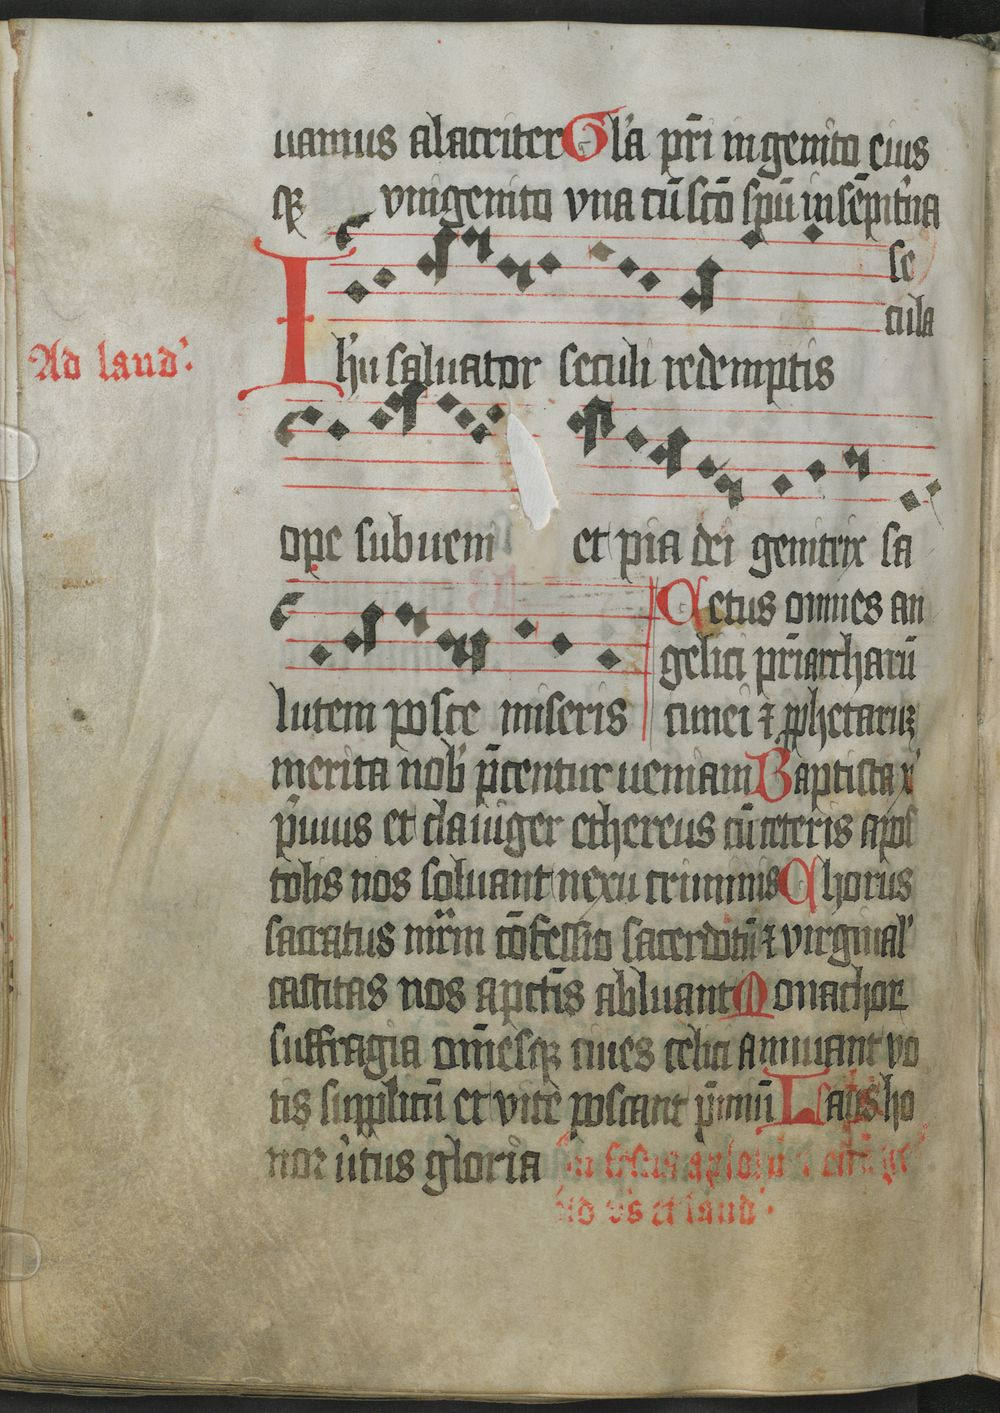 uamus alacriter Gl'a pr̄i ingenito eius
qꝫ vnigenito vna cū sc̄o spū in sēpit'na
se
cula
Ad laud'.
Ih'u saluator seculi redemptis
ope subueni et pia dei genitrix sa
lutem posce miseris
Cetus omnes an
gelici pr̄iarcharū
cunei ⁊ ꝓphetaruꝫ
merita nob' p̄centur ueniam Baptista x'
p̄uius et clauiger ethereus cū ceteris apos
tolis nos soluant nexu criminis Chorus
sacratus mr̄m cōfessio sacerdotū ⁊ virginal'
castitas nos a pctīs abluant Monachoꝝ
suffragia omēsqꝫ ciues celici annuant vo
tis supplicū et vite poscant p̄miū Laus ho
nor u'tus gloria In festis aplo℞
Ad vs̄ et laud'.